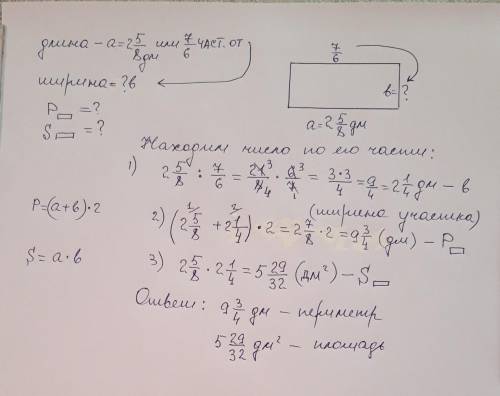 длина - a = 2 5/8 дм или 7/6 част. от
ширина = ? в
P▭ = ?
S▭ = ?
7/6
в = ?
a = 2 5/8 дм
Находим число по его части:
1) 2 5/8 : 7/6 = 21³/8₄ · 6³/7₁ = 3·3/4 = 9/4 = 2 1/4 дм - в
(ширина участка)
P = (a+в)·2
2) (2 5/8 /1 + 2 1/4 /2) · 2 = 2 7/8 · 2 = 9 3/4 (дм) - P▭
S = a · в
3) 2 5/8 · 2 1/4 = 5 29/32 (дм²) - S▭
Ответ: 9 3/4 дм - периметр
5 29/32 дм² - площадь